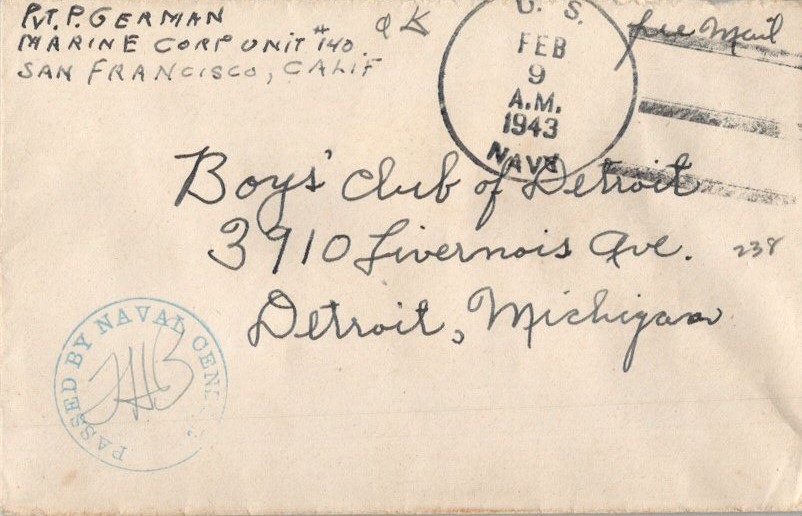 PVT. P. GERMAN
MARINE CORP UNIT #140.
SAN FRANCISCO, CALIF
OK
U. S.
FEB
9
A.M.
1943
NAVY
Free Mail
Boys' Club of Detroit
3910 Livernois Ave.
238
Detroit, Michigan
PASSED BY NAVAL CEN